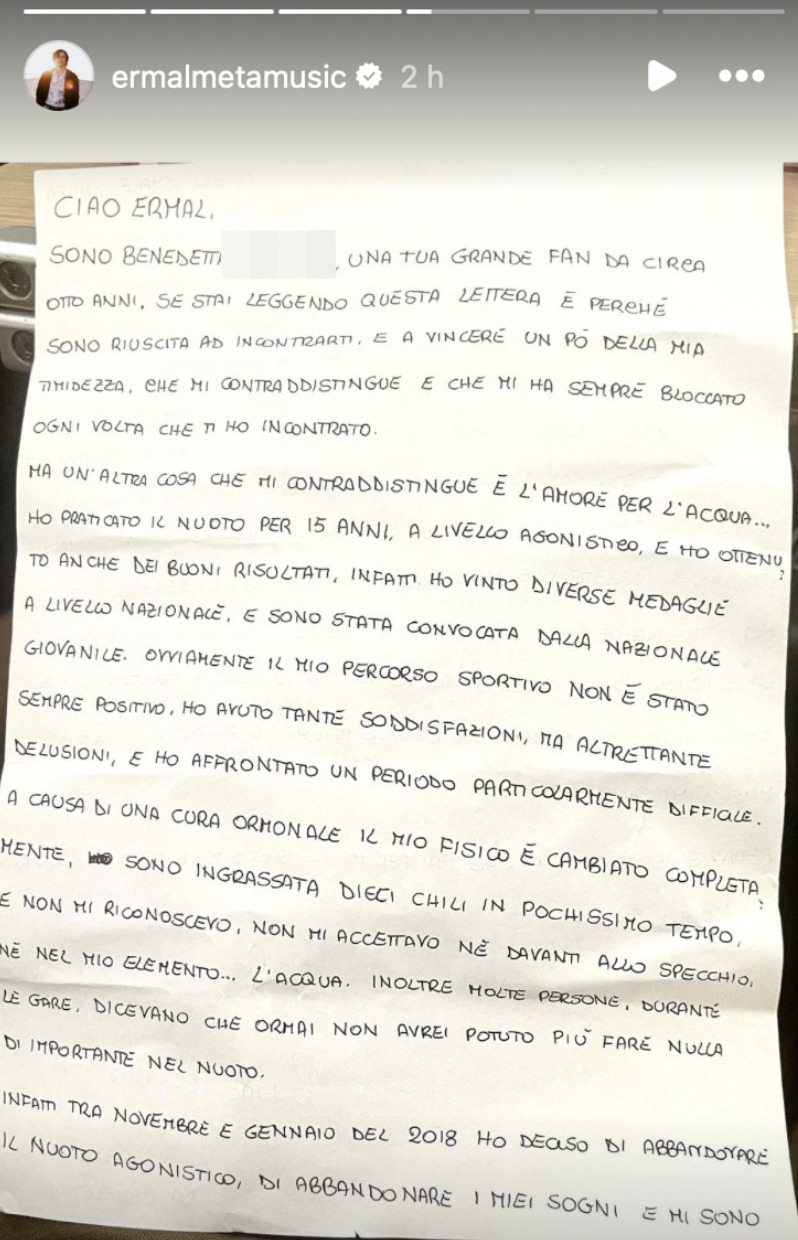 ermalmetamusic 2 h
CIAO ERMAL,
SONO BENEDETT , UNA TUA GRANDE FAN DA CIRCA
OTTO ANNI, SE STAI LEGGENDO QUESTA LETTERA È PERCHÉ
SONO RIUSCITA AD INCONTRARTI, E A VINCERE UN PÒ DELLA MIA
TIMIDEZZA, CHE MI CONTRADDISTINGUE E CHE MI HA SEMPRE BLOCCATO
OGNI VOLTA CHE TI HO INCONTRATO.
MA UN'ALTRA COSA CHE MI CONTRADDISTINGUE È L'AMORE PER L'ACQUA...
HO PRATICATO IL NUOTO PER 15 ANNI, A LIVELLO AGONISTICO, E HO OTTENU
TO ANCHE DEI BUONI RISULTATI, INFATTI HO VINTO DIVERSE MEDAGLIE
A LIVELLO NAZIONALE, E SONO STATA CONVOCATA DALLA NAZIONALE
GIOVANILE. OVVIAMENTE IL MIO PERCORSO SPORTIVO NON È STATO
SEMPRE POSITIVO, HO AVUTO TANTE SODDISFAZIONI, MA ALTRETTANTE
DELUSIONI, E HO AFFRONTATO UN PERIODO PARTICOLARMENTE DIFFICILE.
A CAUSA DI UNA CURA ORMONALE IL MIO FISICO È CAMBIATO COMPLETA
MENTE, SONO INGRASSATA DIECI CHILI IN POCHISSIMO TEMPO,
E NON MI RICONOSCEVO, NON MI ACCETTAVO NÈ DAVANTI ALLO SPECCHIO,
NÈ NEL MIO ELEMENTO... L'ACQUA. INOLTRE MOLTE PERSONE, DURANTE
LE GARE, DICEVANO CHE ORMAI NON AVREI POTUTO PIÙ FARE NULLA
DI IMPORTANTE NEL NUOTO.
INFATTI TRA NOVEMBRE E GENNAIO DEL 2018 HO DECISO DI ABBANDONARE
IL NUOTO AGONISTICO, DI ABBANDONARE I MIEI SOGNI E MI SONO